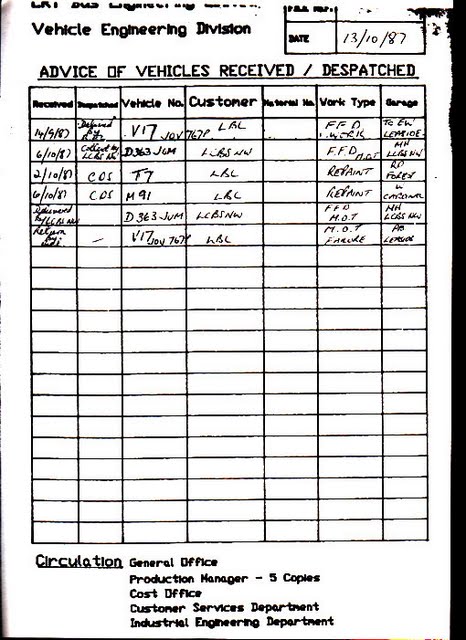 LRT Bus Engineering
Vehicle Engineering Division
DATE 13/10/87
ADVICE OF VEHICLES RECEIVED / DESPATCHED
Received Despatched Vehicle No. Customer Material No. Work Type Garage
14/9/87 Delivered by V17 JOV 767P LBL F.F.D I.WERK TO EW LEASIDE
6/10/87 Collect by LCBS NW D363 JUM LCBS NW F.F.D M.O.T HH LCBS NW
2/10/87 CDS T7 LBL REPAINT RD FOREST
6/10/87 CDS M91 LBL REPAINT W CARDINAL
Delivered by LCBS NW D363 JUM LCBS NW F.F.D M.O.T HH LCBS NW
Return - V17 JOV 767P LBL M.O.T FAILURE LEASIDE
Circulation General Office
Production Manager - 5 Copies
Cost Office
Customer Services Department
Industrial Engineering Department